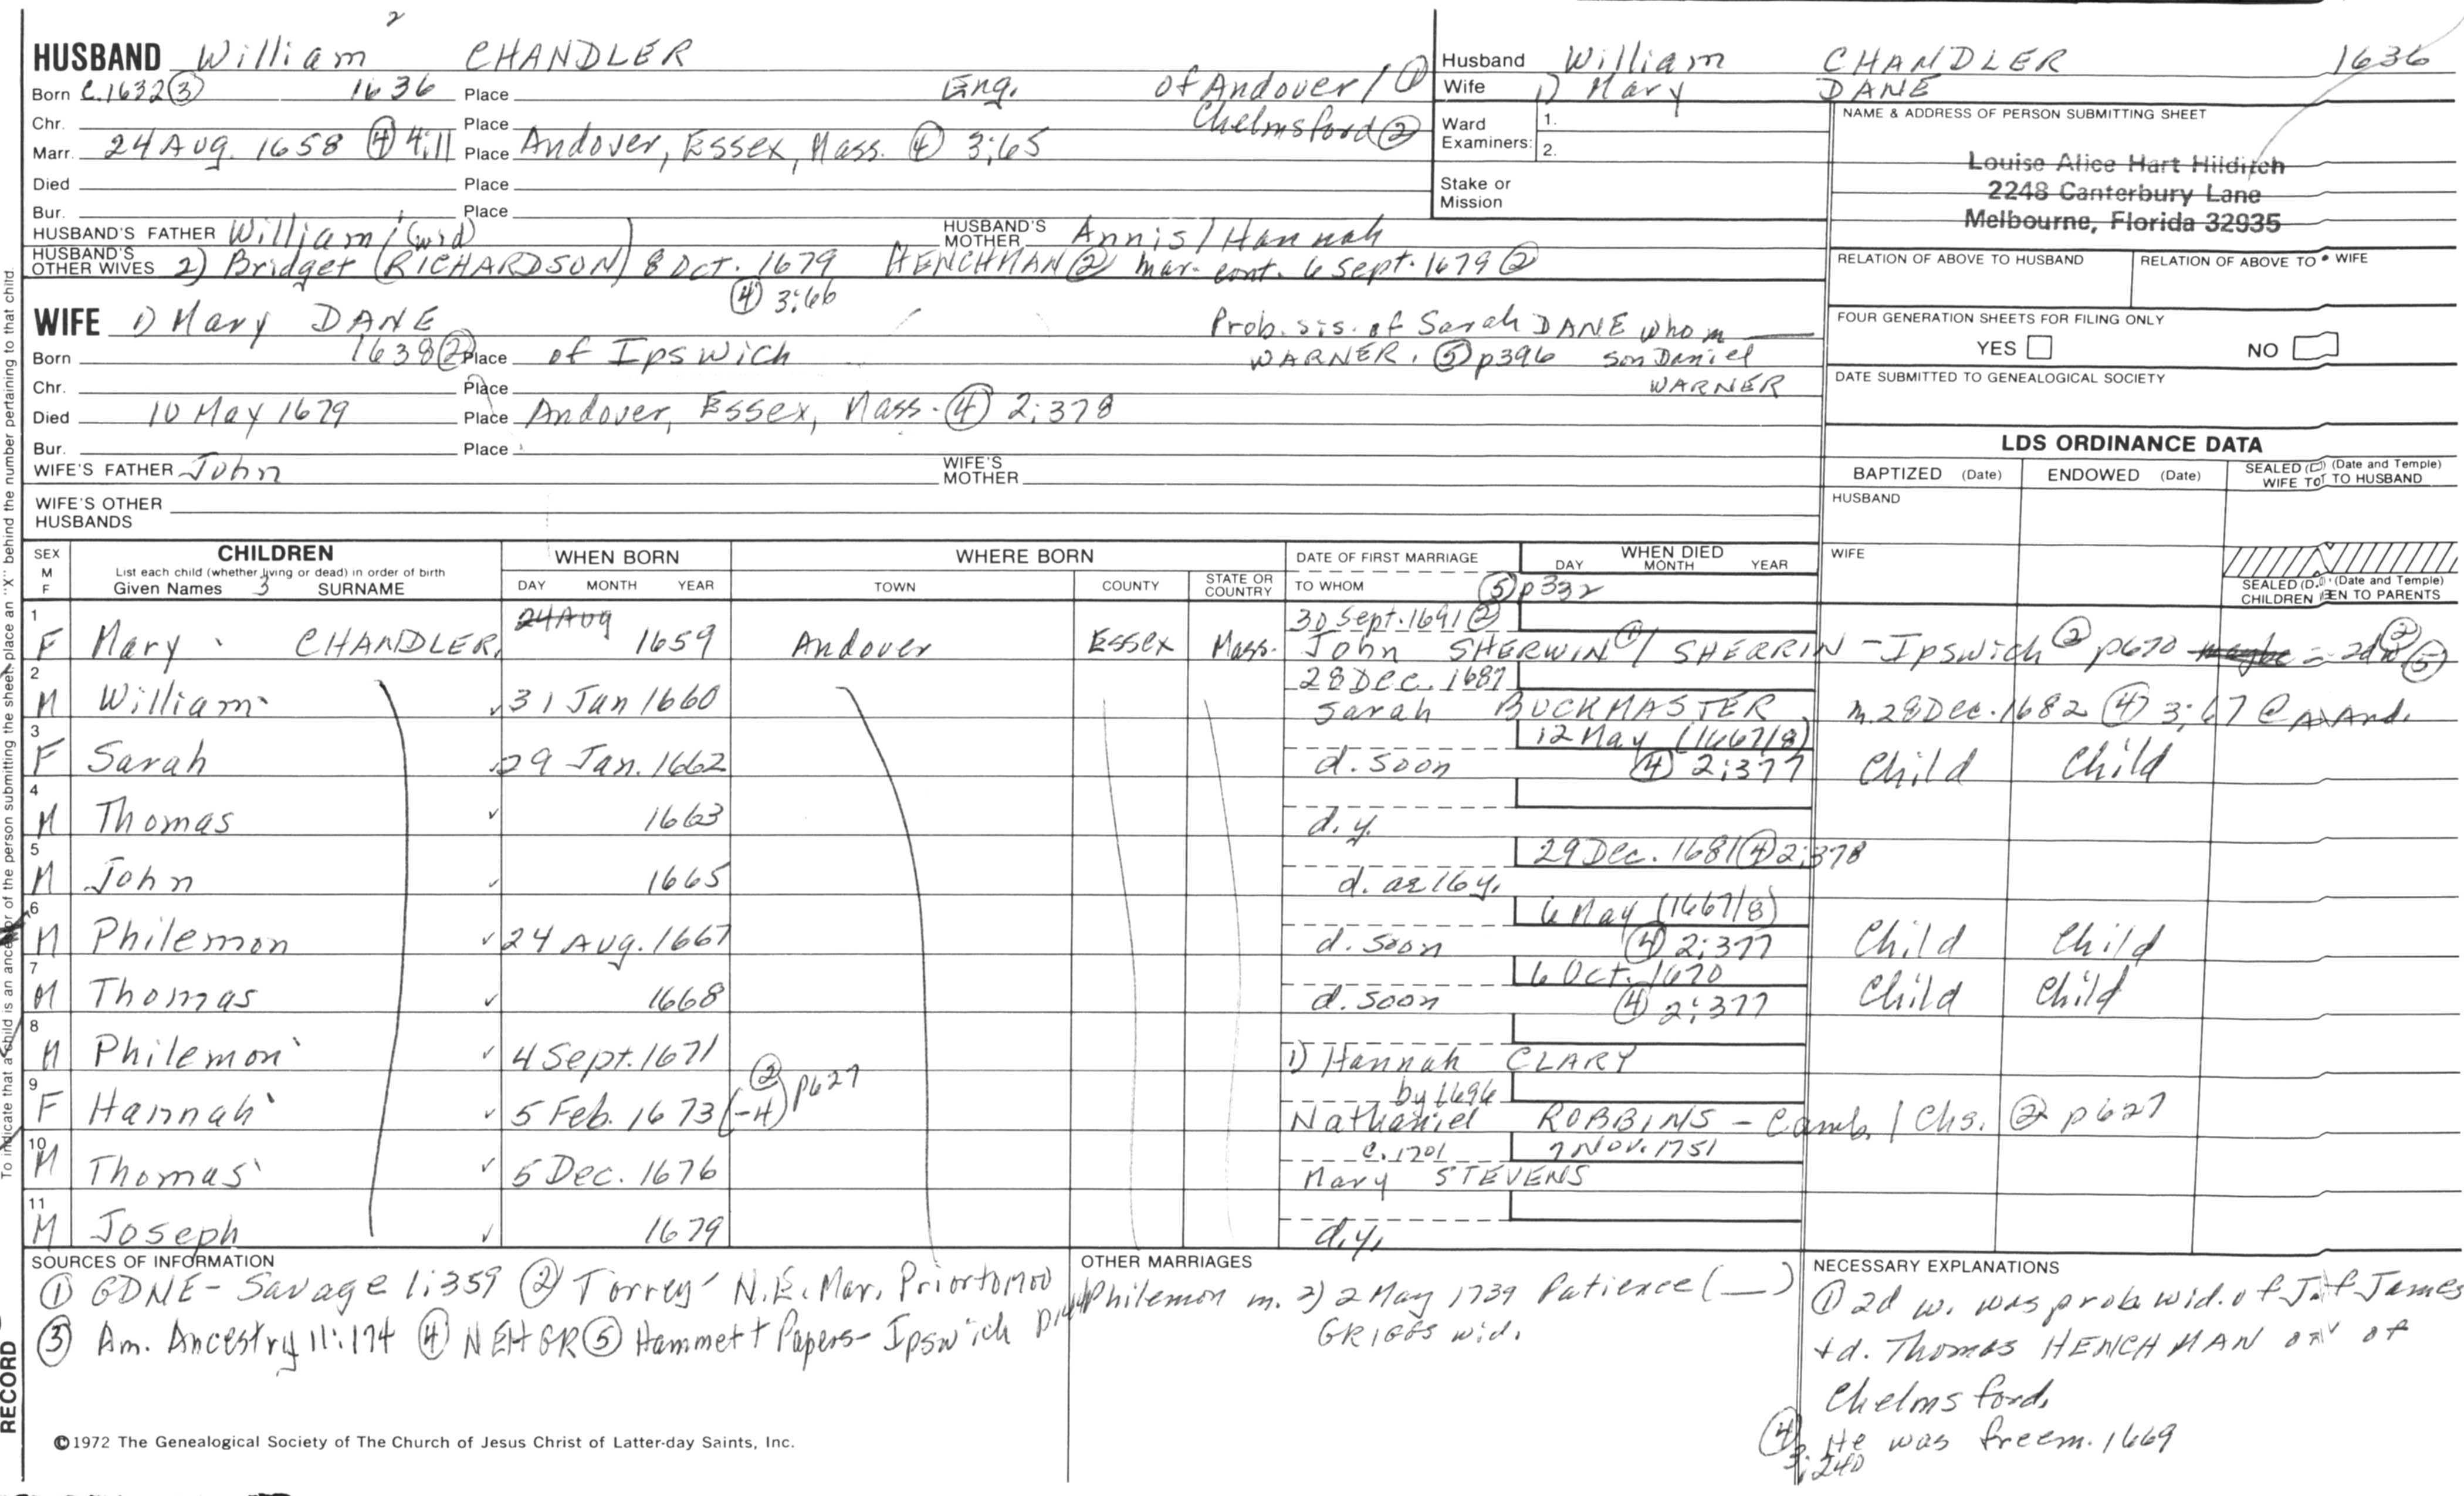 2
HUSBAND William CHANDLER
Born C.1632 ③ 1636 Place Eng. of Andover / ①
Chr. Place Chelmsford ②
Marr. 24 Aug. 1658 ④ 4:11 Place Andover, Essex, Mass. ④ 3:65
Died Place
Bur. Place
HUSBAND'S FATHER William / (wid) HUSBAND'S MOTHER Annis / Hannah
HUSBAND'S OTHER WIVES 2) Bridget (RICHARDSON) 8 Oct. 1679 HENCHMAN ② mar. cont. 6 Sept. 1679 ②
④ 3:66
WIFE 1) Mary DANE Prob. sis. of Sarah DANE who m
Born 1638 ② Place of Ipswich WARNER. ⑤ p396 son Daniel
Chr. Place WARNER
Died 10 May 1679 Place Andover, Essex, Mass. ④ 2:378
Bur. Place
WIFE'S FATHER John WIFE'S MOTHER
WIFE'S OTHER HUSBANDS
Husband William CHANDLER 1636
Wife 1) Mary DANE
Ward Examiners: 1.
2.
Stake or Mission
NAME & ADDRESS OF PERSON SUBMITTING SHEET
Louise Alice Hart Hilditch
2248 Canterbury Lane
Melbourne, Florida 32935
RELATION OF ABOVE TO HUSBAND RELATION OF ABOVE TO WIFE
FOUR GENERATION SHEETS FOR FILING ONLY
YES NO
DATE SUBMITTED TO GENEALOGICAL SOCIETY
LDS ORDINANCE DATA
BAPTIZED (Date) ENDOWED (Date) SEALED (Date and Temple) WIFE TO HUSBAND
HUSBAND
WIFE
SEALED (Date and Temple) CHILDREN TO PARENTS
SEX M F CHILDREN WHEN BORN WHERE BORN DATE OF FIRST MARRIAGE WHEN DIED
List each child (whether living or dead) in order of birth
Given Names 3 SURNAME DAY MONTH YEAR TOWN COUNTY STATE OR COUNTRY TO WHOM DAY MONTH YEAR
⑤ p332
1 24 Aug 30 Sept. 1691 ②
F Mary CHANDLER 1659 Andover Essex Mass. John SHERWIN ① / SHERRIN - Ipswich ② p670 maybe = 2d ② ⑤
2 28 Dec. 1687
M William 31 Jan 1660 Sarah BUCKMASTER m. 28 Dec. 1682 ④ 3:67 @ And.
3 12 May (1667/8)
F Sarah 29 Jan. 1662 d. soon ④ 2:377 Child Child
4
M Thomas 1663 d.y.
5 29 Dec. 1681 ④ 2:378
M John 1665 d. ae 16 y.
6 6 May (1667/8)
M Philemon 24 Aug. 1667 d. soon ④ 2:377 Child Child
7 6 Oct. 1670
M Thomas 1668 d. soon ④ 2:377 Child Child
8
M Philemon 4 Sept. 1671 1) Hannah CLARY
9 by 1696
F Hannah 5 Feb. 1673 (-4) ② p627 Nathaniel ROBBINS - Camb. / Chs. ② p627
10 c. 1701 7 Nov. 1751
M Thomas 5 Dec. 1676 Mary STEVENS
11
M Joseph 1679 d.y.
SOURCES OF INFORMATION
① GDNE - Savage 1:359 ② Torrey N.E. Mar. Prior to 1700
③ Am. Ancestry 11:174 ④ NEHGR ⑤ Hammett Papers - Ipswich
OTHER MARRIAGES
Philemon m. 2) 2 May 1739 Patience ( )
GRIGGS wid.
NECESSARY EXPLANATIONS
① 2d w. was prob. wid. of James
+ d. Thomas HENCHMAN of
Chelmsford.
④ He was freem. 1669
3:240
©1972 The Genealogical Society of The Church of Jesus Christ of Latter-day Saints, Inc.
To indicate that a child is an ancestor of the person submitting the sheet, place an "X" behind the number pertaining to that child.
RECORD